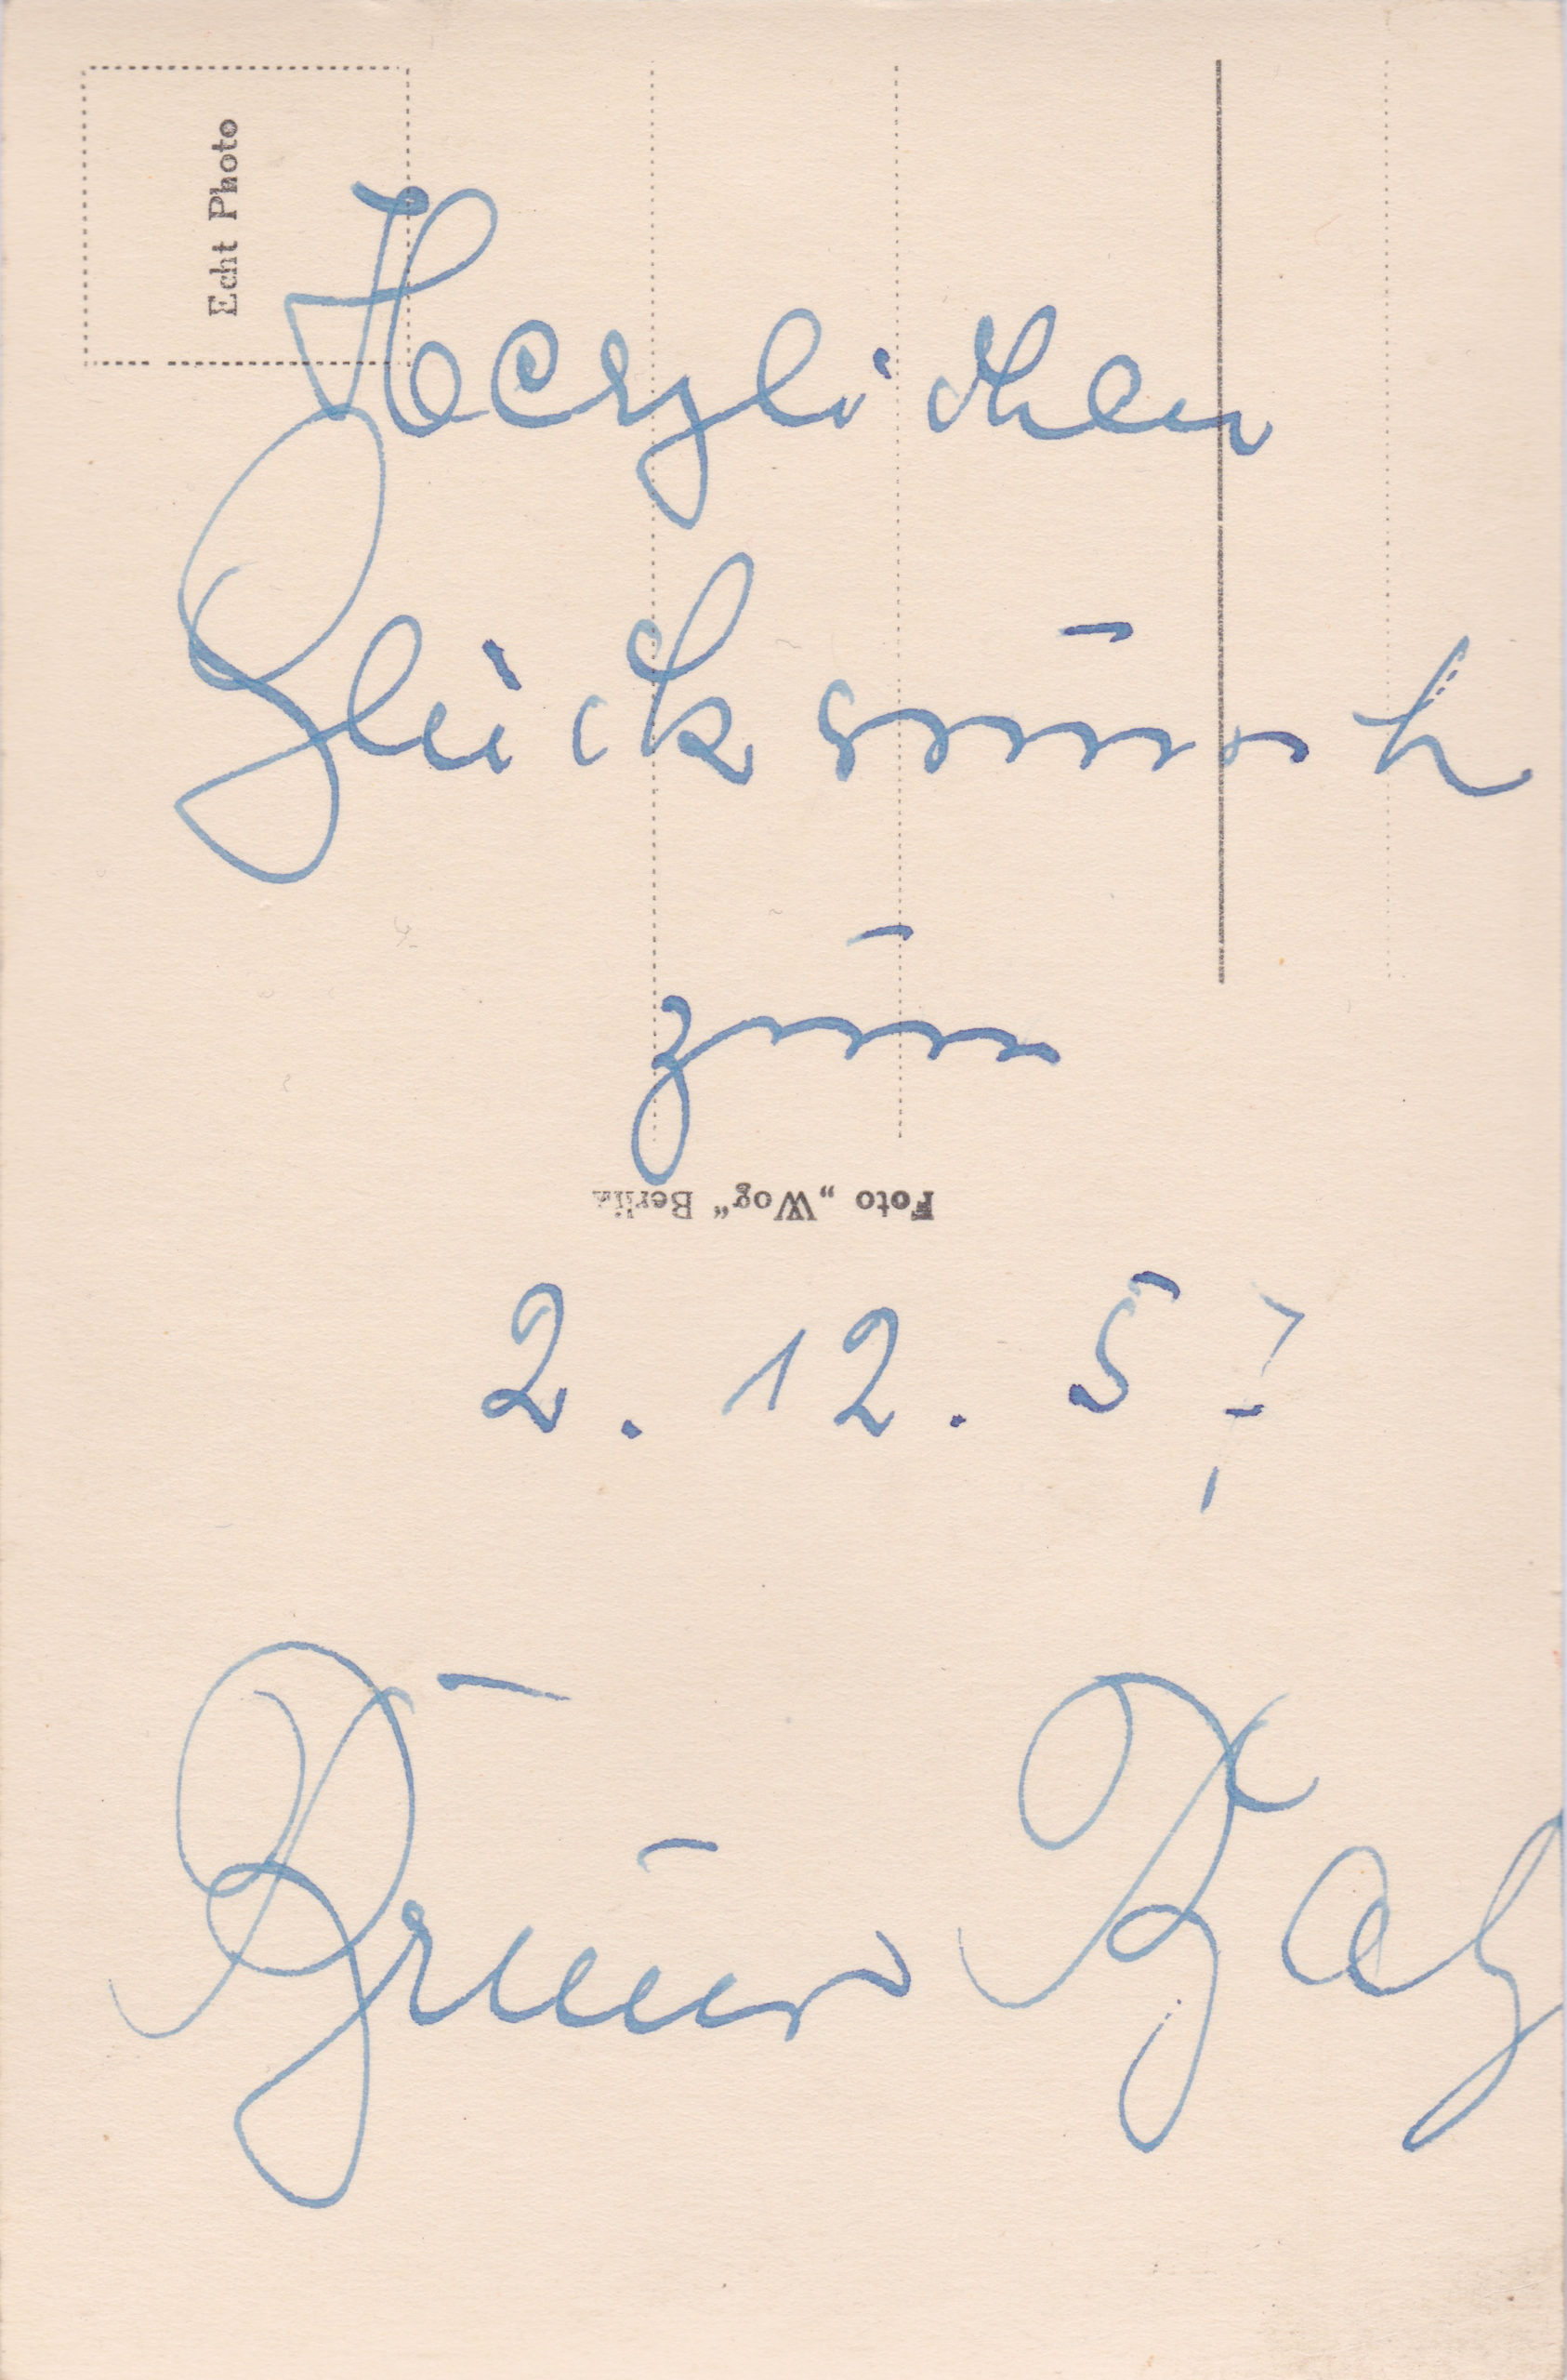 Echt Photo
Herzlichen
Glückwunsch
zum
Foto „Wog“ Berlin
2. 12. 57
Bruno